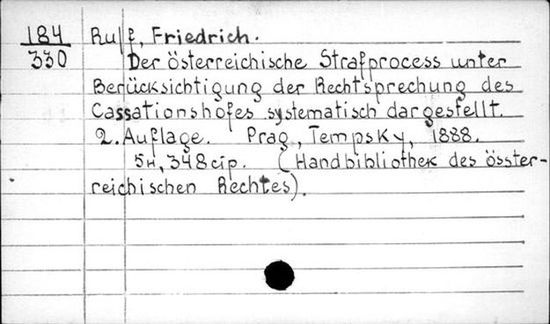 184 Rulf, Friedrich.
330 Der österreichische Strafprocess unter
Berücksichtigung der Rechtsprechung des
Cassationshofes systematisch dargestellt.
2. Auflage. Prag, Tempsky, 1888.
5н, 348 стр. (Handbibliothek desösster-
reichischen Rechtes).